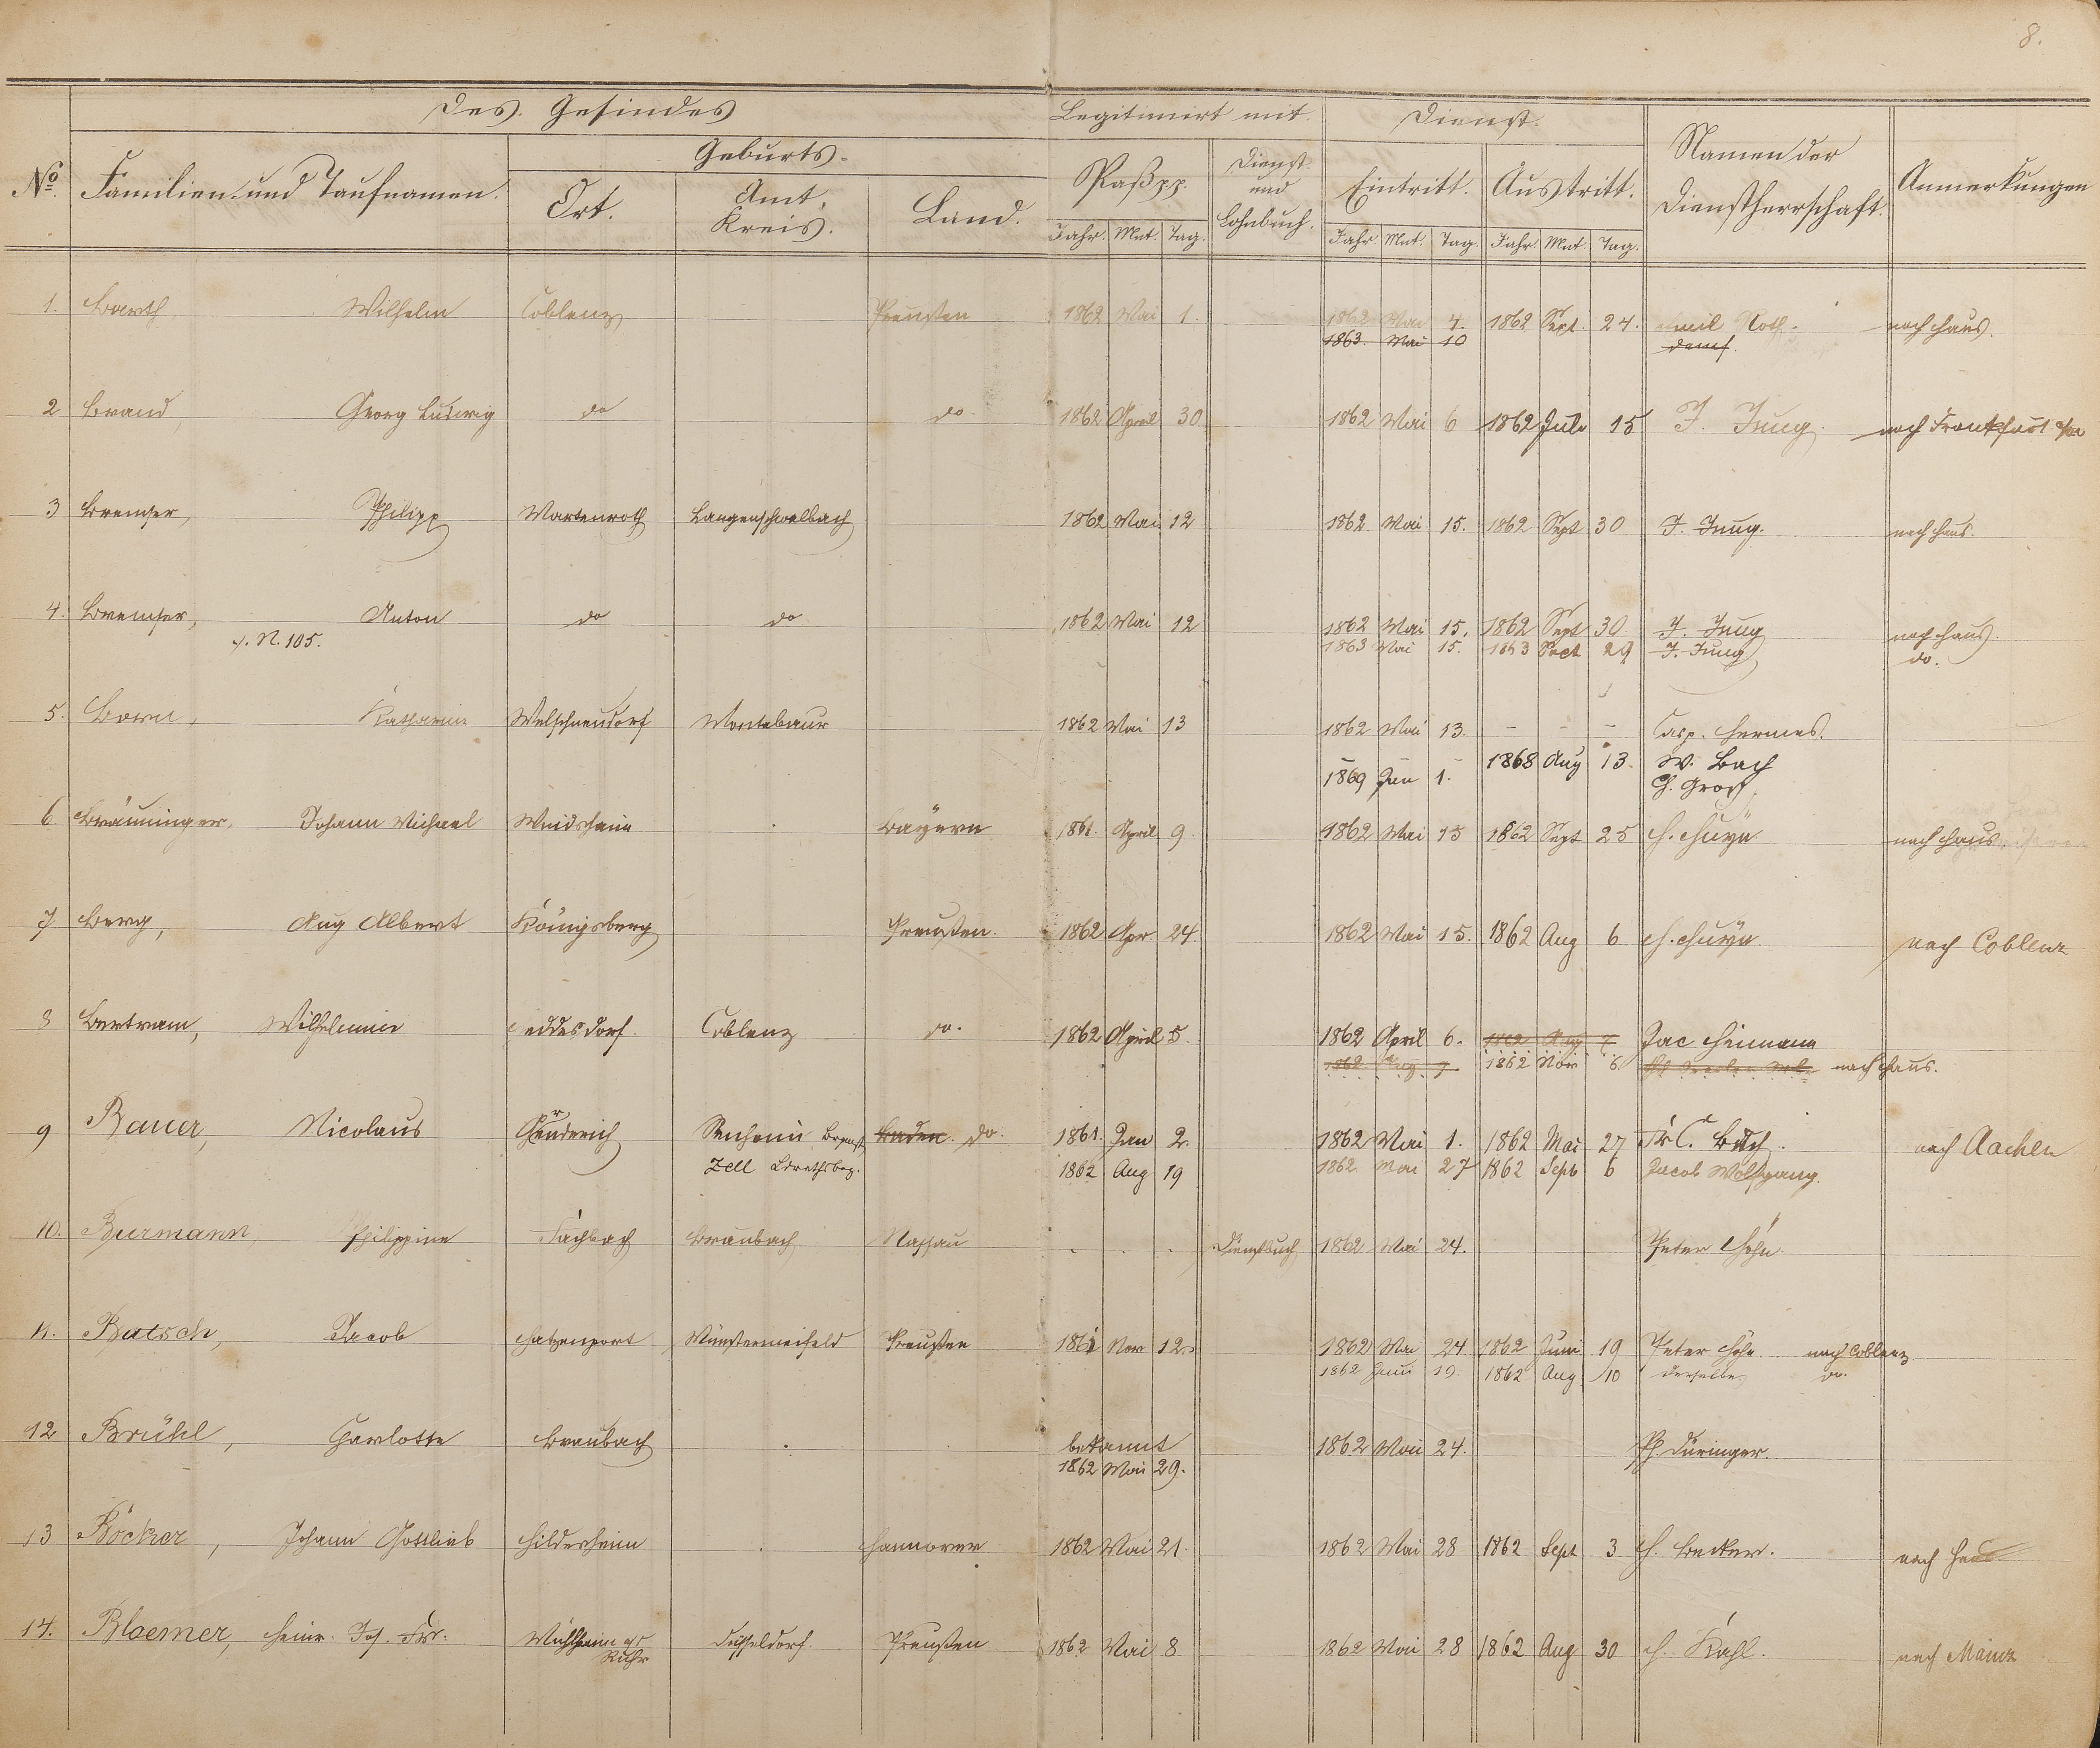 8.
Des Gesindes Legitimirt mit. Dienst.
No. Familien- und Taufnamen. Geburts- Paß pp. Dienst- und Lohnbuch. Eintritt. Austritt. Namen der Dienstherrschaft. Anmerkungen
Ort. Amt, Kreis. Land.
Jahr. Mnt. Tag. Jahr. Mnt. Tag. Jahr. Mnt. Tag.
1. Barth, Wilhelm Coblenz Preußen 1862 Mai 1. 1862 Mai 4. 1862 Sept. 24. Emil Roth. nach Haus.
1863. Mai 10 dems.
2 Brand, Georg Ludwig do do. 1862 April 30. 1862 Mai 6 1862 July 15 J. Jung. nach Frankfurt a/m
3 Bremser, Philipp Martenroth Langenschwalbach 1862 Mai 12 1862 Mai 15. 1862 Sept 30 J. Jung. nach Haus.
4. Bremser, Anton do do 1862 Mai 12 1862 Mai 15. 1862 Sept 30. J. Jung nach Haus.
s. N. 105. 1863 Mai 15. 1863 Sept 29 J. Jung do.
5. Born, Katharine Welschneudorf Montabaur 1862 Mai 13 1862 Mai 13. - - - Casp. Hermes.
1868 Aug 13. W. Bach
1869 Jan 1. Ch. Groß.
6. Bräuninger, Johann Michael Windsheim Bayern 1861. April 9. 1862 Mai 15 1862 Sept 25 H. Huyn nach Haus.
7 Berg, Aug Albert Königsberg Preußen. 1862 Apr. 24. 1862 Mai 15. 1862 Aug 6 H. Huyn. nach Coblenz
8 Bertram, Wilhelmine Heddesdorf. Coblenz do. 1862 April 5 1862 April 6. 1862 Aug 7 Jac Heimann
1862 Aug 7 1862 Nov 6 nach Haus.
9 Bauer, Nicolaus Baden. do. 1861. Jan 2. 1862 Mai 1. 1862 Mai 27 Fr C. Buch. nach Aachen
Zell 1862 Aug 19 1862. Mai 27 1862 Sept 6 Jacob Wolfgang.
10. Burmann, Philippine Fachbach Braubach Nassau . . . Dienstbuch 1862 Mai 24. Peter Höhn.
11. Batsch, Jacob Hatzenport Münstermeifeld Preußen 1861 Nov 12. 1862 Mai 24 1862 Juni 19 Peter Höhn. nach Coblenz.
1862 Juni 19. 1862 Aug 10 derselbe do.
12 Brühl, Charlotte Braubach bekannt 1862 Mai 24. Ph. Düringer.
1862 Mai 29.
13 Böcker, Johann Gottlieb Hildesheim Hannover 1862 Mai 21. 1862 Mai 28 1862 Sept 3 H. Becker. nach Haus
14. Bloemer, Heinr. Jos. Frz. Mühlheim a/d Düsseldorf. Preußen 1862 Mai 8 1862 Mai 28 1862 Aug 30 H. Kahl. nach Mainz
Ruhr